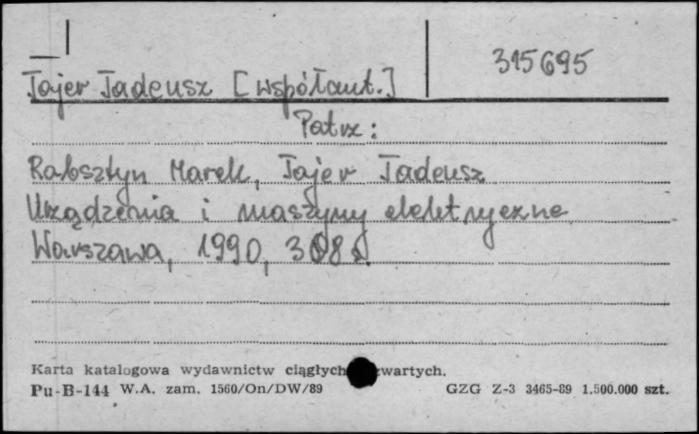 315695
Tajer Tadeusz [współaut.]
Patrz:
Rabsztyn Marek, Tajer Tadeusz
Urządzenia i maszyny elektryczne
Warszawa, 1990, 308 s.
Karta katalogowa wydawnictw ciągłych zwartych.
Pu-B-144 W.A. zam. 1560/On/DW/89 GZG Z-3 3465-89 1.500.000 szt.